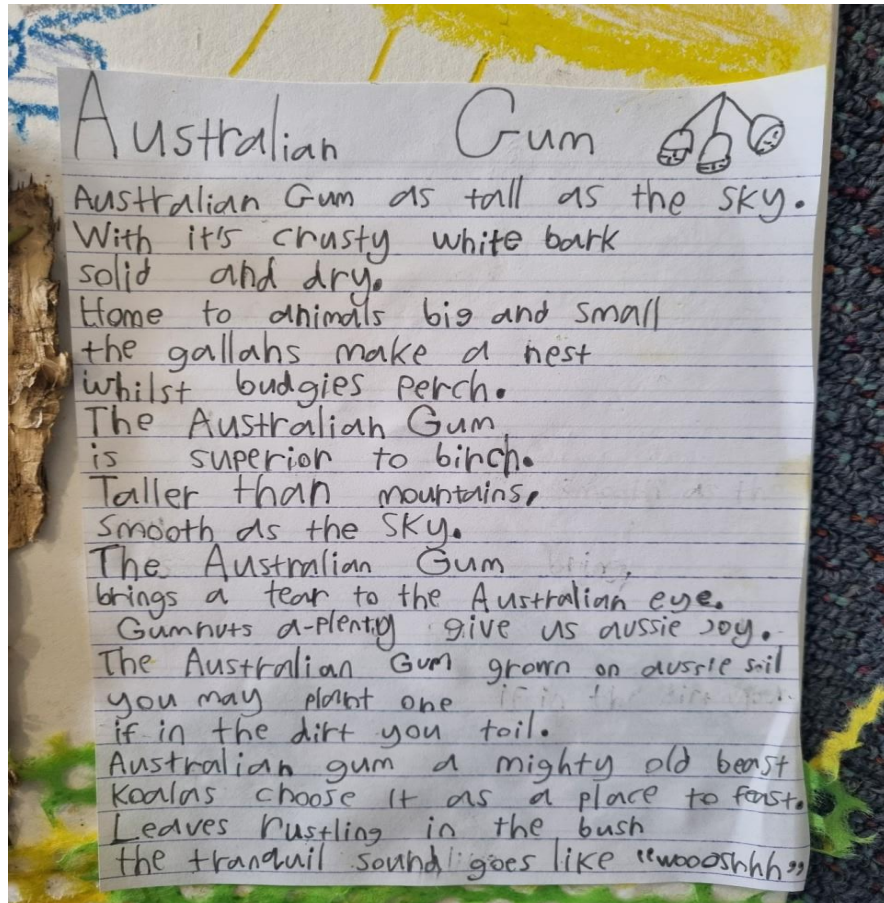 Australian Gum
Australian Gum as tall as the sky.
With it's crusty white bark
solid and dry.
Home to animals big and small
the gallahs make a nest
whilst budgies perch.
The Australian Gum
is superior to birch.
Taller than mountains,
smooth as the sky.
The Australian Gum
brings a tear to the Australian eye.
Gumnuts a-plenty give us aussie joy.
The Australian Gum grown on aussie soil
you may plant one
if in the dirt you toil.
Australian gum a mighty old beast
Koalas choose it as a place to feast.
Leaves rustling in the bush
the tranquil sound goes like "woooshhh"